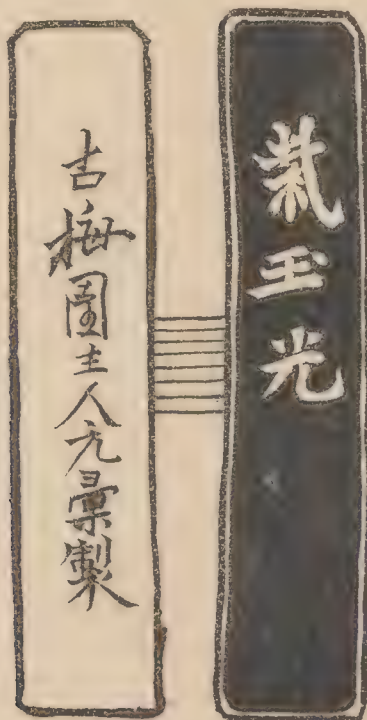 紫玉光
古梅園主人元彙製